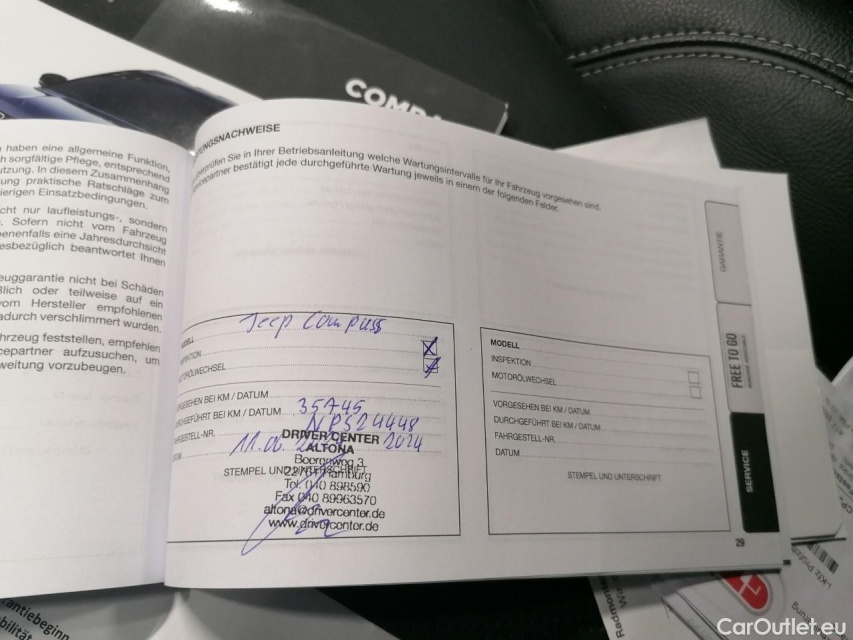 COMPA
haben eine allgemeine Funktion,
sorgfältige Pflege, entsprechend
utzung. In diesem Zusammenhang
ung praktische Ratschläge zum
ierigen Einsatzbedingungen.
cht nur laufleistungs-, sondern
. Sofern nicht vom Fahrzeug
enenfalls eine Jahresdurchsicht
esbezüglich beantwortet Ihnen
euggarantie nicht bei Schäden
ßlich oder teilweise auf ein
vom Hersteller empfohlenen
adurch verschlimmert wurden.
hrzeug feststellen, empfehlen
cepartner aufzusuchen, um
weitung vorzubeugen.
TUNGSNACHWEISE
erprüfen Sie in Ihrer Betriebsanleitung welche Wartungsintervalle für Ihr Fahrzeug vorgesehen sind.
icepartner bestätigt jede durchgeführte Wartung jeweils in einem der folgenden Felder.
Jeep Compass
MODELL
INSPEKTION
MOTORÖLWECHSEL
VORGESEHEN BEI KM / DATUM
DURCHGEFÜHRT BEI KM / DATUM
FAHRGESTELL-NR.
DATUM
NPS24448
2024
DRIVER CENTER
ALTONA
22761 Hamburg
STEMPEL UND UNTERSCHRIFT
Tel. 040 898590
Fax 040 89963570
altona@drivercenter.de
www.drivercenter.de
MODELL
INSPEKTION
MOTORÖLWECHSEL
VORGESEHEN BEI KM / DATUM
DURCHGEFÜHRT BEI KM / DATUM
FAHRGESTELL-NR.
DATUM
STEMPEL UND UNTERSCHRIFT
GARANTIE
FREE TO GO
SERVICE
29
arantiebeginn
bilität
CarOutlet.eu